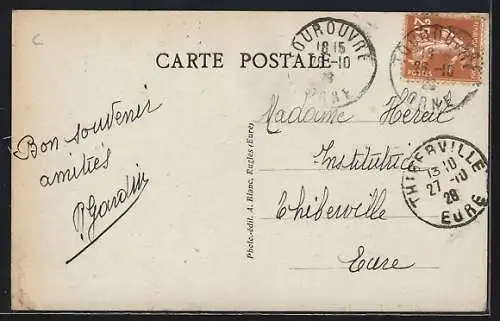 CARTE POSTALE
TOUROUVRE
18 15
26-10
28
ORNE
TOUROUVRE
26-10
28
ORNE
Bon souvenir
amitiés
P. Gardin
Photo.-édit. A. Blanc, Rugles (Eure)
Madame Hereil
Institutrice
Thiberville
Eure
THIBERVILLE
13 10
27-10
28
EURE